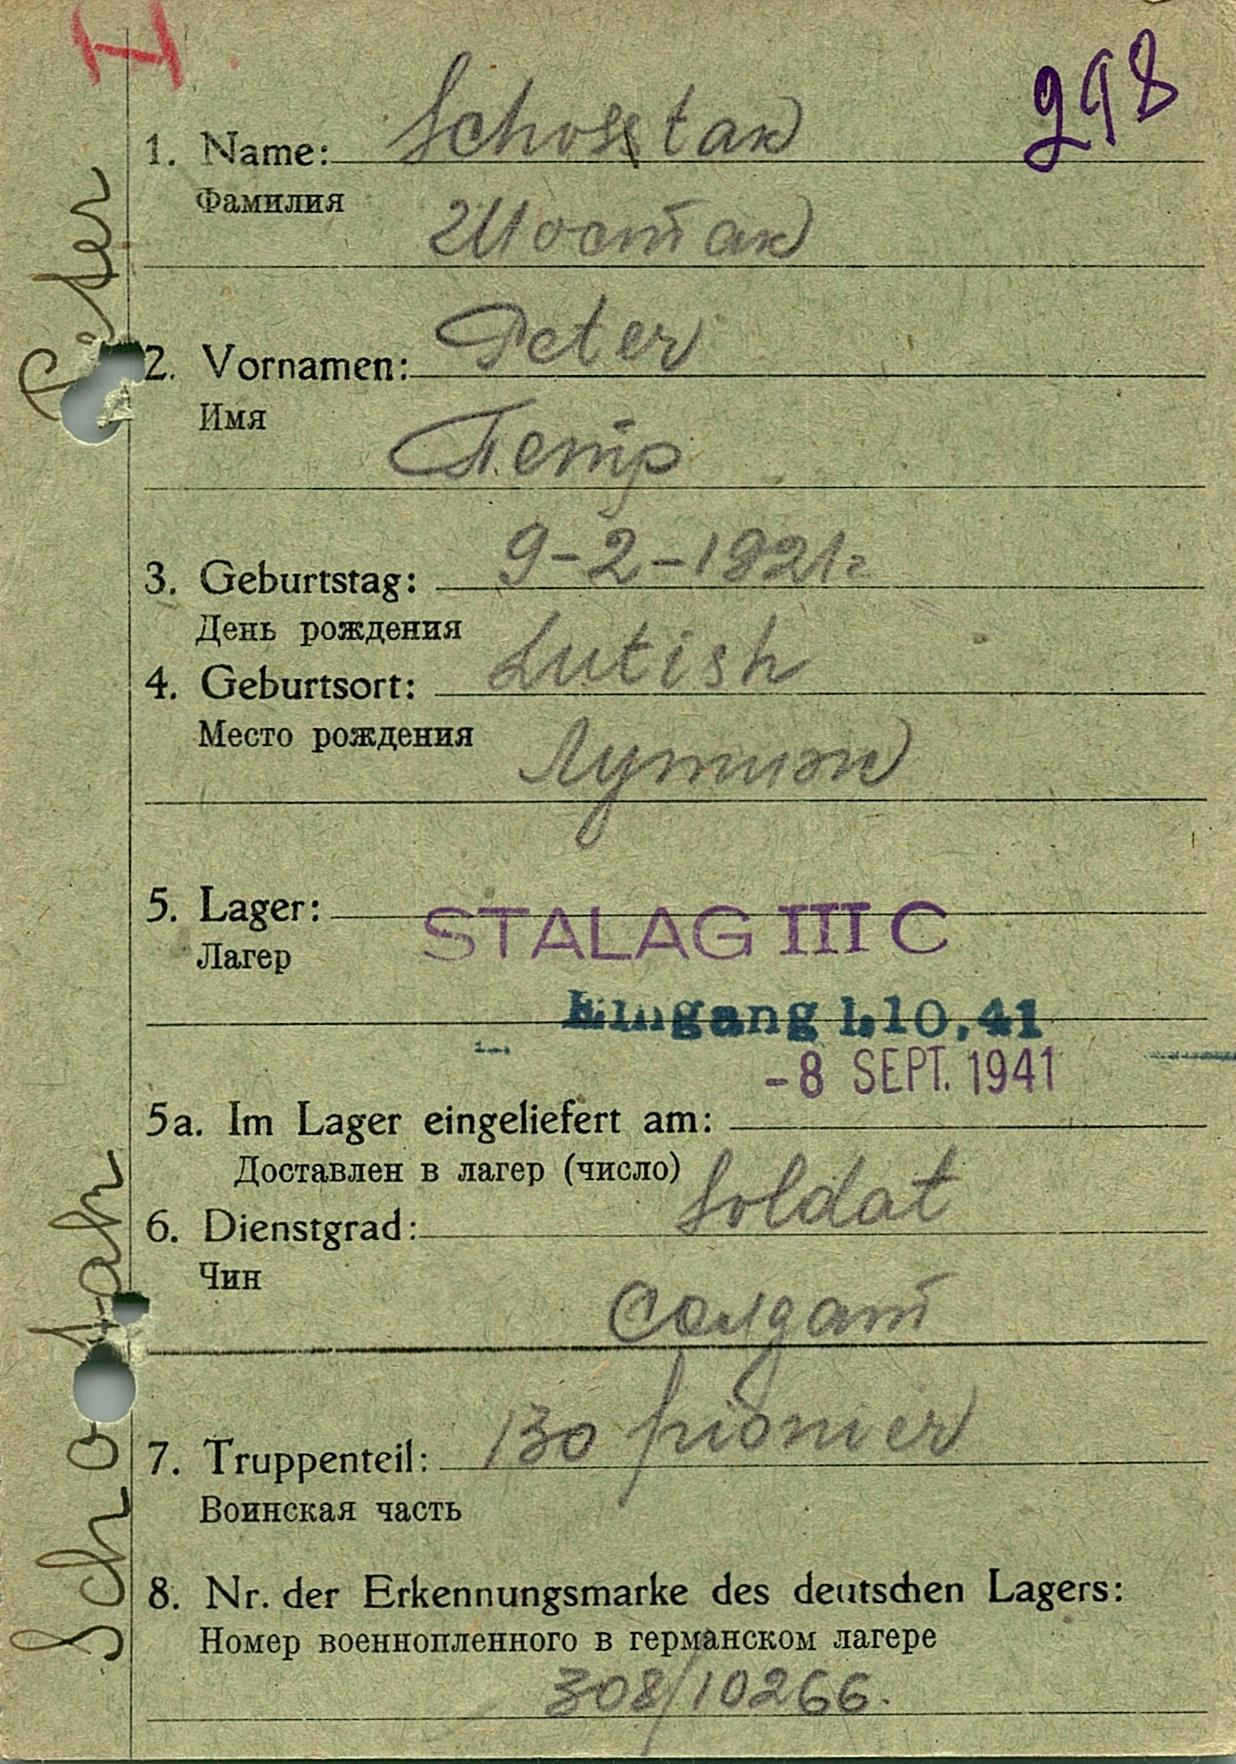 298
1. Name: Schostak
Фамилия
Шостак
2. Vornamen: Peter
Имя
Петр
3. Geburtstag: 9-2-1921г
День рождения
4. Geburtsort: Lutish
Место рождения
Лутиж
5. Lager: STALAG III C
Лагер
Eingang 1.10.41
-8 SEPT. 1941
5a. Im Lager eingeliefert am:
Доставлен в лагер (число)
6. Dienstgrad: Soldat
Чин
Солдат
7. Truppenteil: 130 pionier
Воинская часть
8. Nr. der Erkennungsmarke des deutschen Lagers:
Номер военнопленного в германском лагере
308/10266.
Schostak Peter